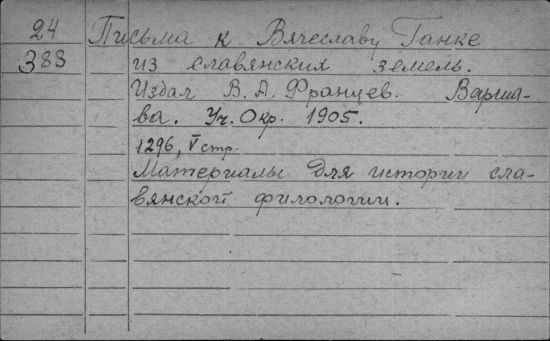 24 Письма к Вячеславу Ганке
388 из славянских земель.
Издал В. А. Францев. Варша-
ва. Уч. Окр. 1905.
1296, V стр.
Материалы для истории сла-
вянской филологии.